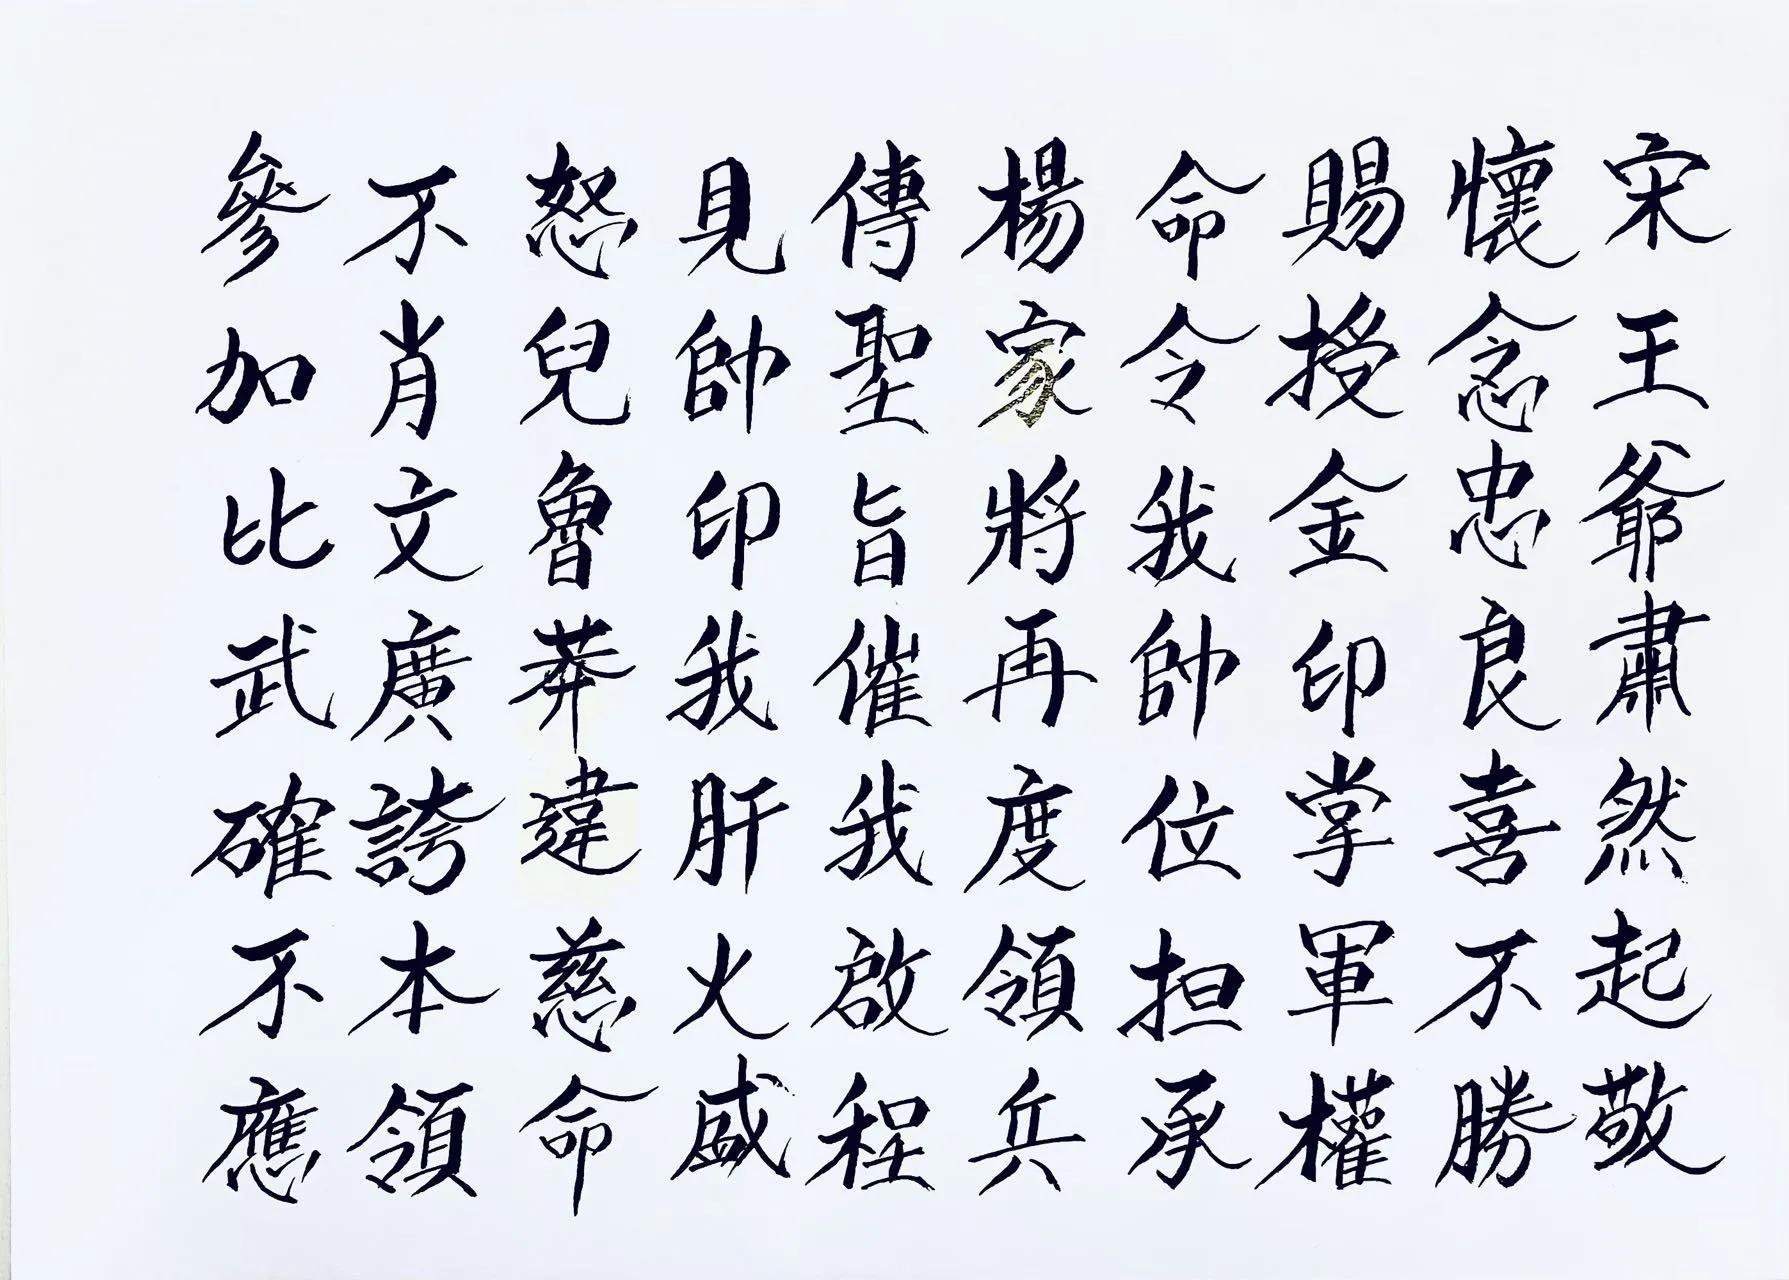 宋王爺肅然起敬
懷念忠良喜不勝
賜授金印掌軍權
命令我帥位担承
楊家將再度領兵
傳聖旨催我啟程
見帥印我肝火盛
怒兒魯莽違慈命
不肖文廣誇本領
參加比武確不應